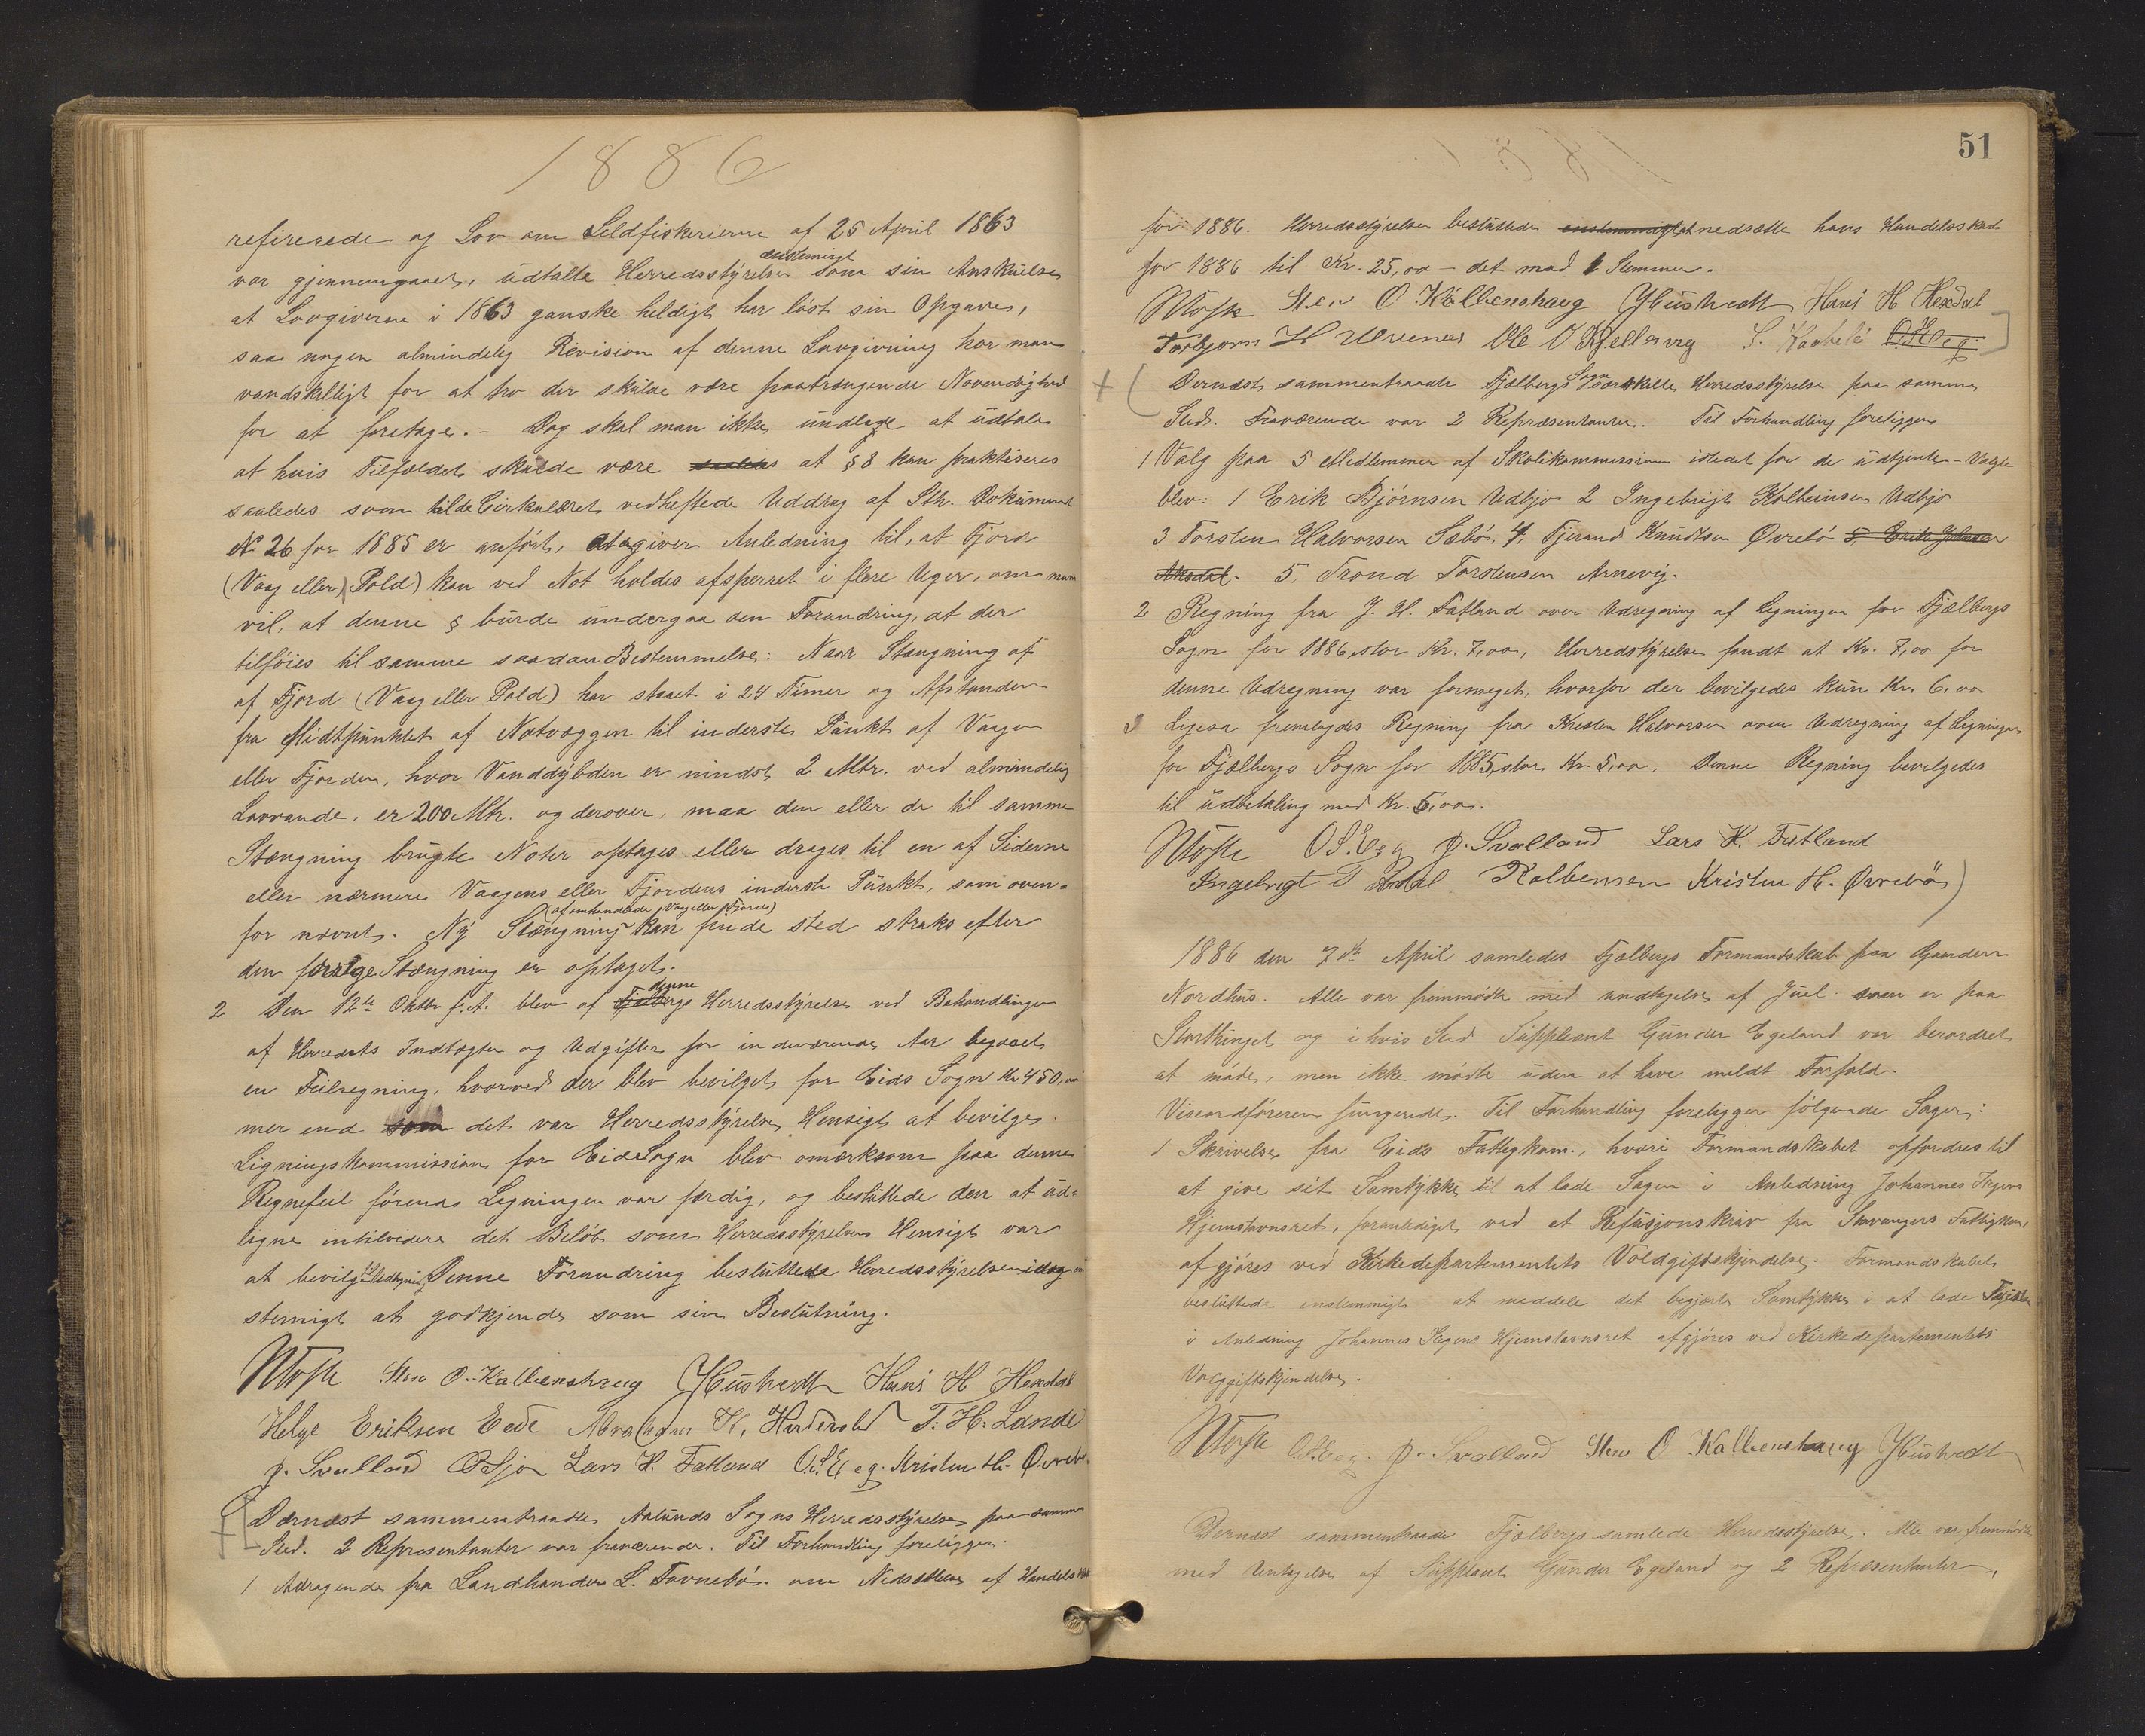 1886
refirerede og Lov om Sildfiskerierne af 25 April 1863
var gjennemgaaet, udtalte Herredsstyrelsen enstemmigt som sin Anskuelse
at Lovgiverne i 1863 ganske heldigt har löst sin Opgave,
saa nogen almindelig Revision af denne Lovgivning har man
vandskelligt for at tro der skulde være paatrængende Novendighed
for at foretage. - Dog skal man ikke undlade at udtale
at hvis Tilfældet skulde være saaledes at § 8 kan praktiseres
saaledes som tilde Cirkulæret vedheftede Uddrag af Sth. Dokument
No 26 for 1885 er anfört, Anledning til, at Fjord
(Vaag eller Pold) kan ved Not holdes afsperret i flere Uger, om man
vil, at denne § burde undergaa den Forandring, at der
tilföies til samme saadan Bestemmelse: Naar Stængning af
af Fjord (Vaag eller Pold) har staaet i 24 Timer og Afstanden
fra Midtpunktet af Notvæggen til inderste Punkt af Vaagen
eller Fjorden, hvor Vanddybden er mindst 2 Mtr. ved almindelig
Lavvande, er 200 Mtr. og derover, maa den eller de til samme
Stængning brugte Noter optages eller drages til en af Siderne
eller nærmere Vaagens eller Fjordens inderste Punkt, som oven-
for nævnt. Ny Stængning (af omhandlede Vaag eller Fjord) kan finde sted straks efter
den forrige Stængning er optaget.
2 Den 12te Oktbr f. A. blev af Fjelbergs denne Herredsstyrelse ved Behandlingen
af Herredets Indtægter og Udgifter for indeværende Aar begaaet
en Feilregning, hvorved der blev bevilget for Eids Sogn Kr 450,00
mer end som det var Herredsstyrelsens Hensigt at bevilge.
Ligningskommission for Eids Sogn blev omærksom paa denne
Regnefeil förend Ligningen var færdig, og besluttede den at ud-
ligne intilvidere det Belöb som Herredsstyrelsens Hensigt var
at bevilge til Udligning. Denne Forandring besluttede Herredsstyrelsen idag en
stemmigt at godkjende som sin Beslutning.
Sten O. Kallbenshaug JHustvedt Hans H Hexdal
Helge Eriksen Eede Abraham K. T. H. Lande
P. Svalland Lars H. Fatland O.S. Eeg. Kristen H. Övrebö
Dernæst sammentraadte Aalunds Sogns Herredsstyrelse paa samme
Sted. 2 Representanter var fraværende. Til Forhandling foreligger
1 Adragende fra Landhandler L. Tornebö. om Nedsættelse af Handelsskat
51
for 1886. Herredsstyrelsen besluttede enstemmigt at nedsætte hans Handelsskat
for 1886 til Kr. 25,00 - det med 1 Stemmer.
Sten O Kallbenshaug JHustvedt Hans H Hexdal
Torbjorn H Ole O Kjellesvig O.S.Eeg.
Dernæst sammentraadte Fjælbergs Sogns særskilte Herredsstyrelse paa samme
Sted. Fraværende var 2 Repræsentanter. Til Forhandling foreligger
1 Valg paa 5 Medlemmer af Skolekommissionen istedet for de udtjente - Valgte
blev: 1 Erik Björnsen Udbjo 2 Ingebrigt Kolbeinsen Udbjo
3 Torsten Halvorsen Sæbö, 4, Tjerand Knudtsen Övrebö 5, Erik
Aksdal. 5, Trond Torstensen Arnevig.
2 Regning fra J. H. Fatland over Udregning af Ligningen for Fjælbergs
Sogn for 1886, stor Kr. 7,00, Herredsstyrelsen fandt at Kr. 7,00 for
denne Udregning var formeget, hvorfor der bevilgedes kun Kr. 6,00
3 Ligesa fremlagdes Regning fra Kristen Halvorsen over Udregning af Ligningen
for Fjælbergs Sogn for 1885, stor Kr. 5,00. Denne Regning bevilgedes
til udbetaling med Kr. 5,00.
O.S.Eeg P. Svalland Lars H. Fatland
Ingebrigt Kolbensen Kristen H. Övrebö
1886 den 7de April samledes Fjælbergs Formandskab paa Gaarden
Nordhus. Alle var fremmödte med undtagelse af Juel som er paa
Storthinget og i hvis Sted Suppleant Gunder Egeland var beordret
at möde, men ikke mödte uden at have meldt Forfald.
Viseordföreren fungerede. Til Forhandling foreligger fölgende Sager:
1 Skrivelse fra Eids Fattigkom., hvori Formandskabet opfordres til
at give sit Samtykke til at lade Sagen i Anledning Johannes
Hjemstavnsret, foranlediget ved et Refusjonskrav fra Stavangers Fattigkom,
afgjöres ved Kirkedepartementets Voldgiftskjendelse. Formandskabet
besluttede enstemmigt at meddele det begjærte Samtykke i at lade
i Anledning Johannes Hjemstavnsret afgjöres ved Kirkedepartementets
Voldgiftskjendelse.
O.S.Eeg. P. Svalland Sten O Kallbenshaug JHustvedt
Dernæst sammentraadte Fjælbergs samlede Herredsstyrelse. Alle var fremmödte
med Untagelse af Suppleant Gunder Egeland og 2 Repræsentanter,